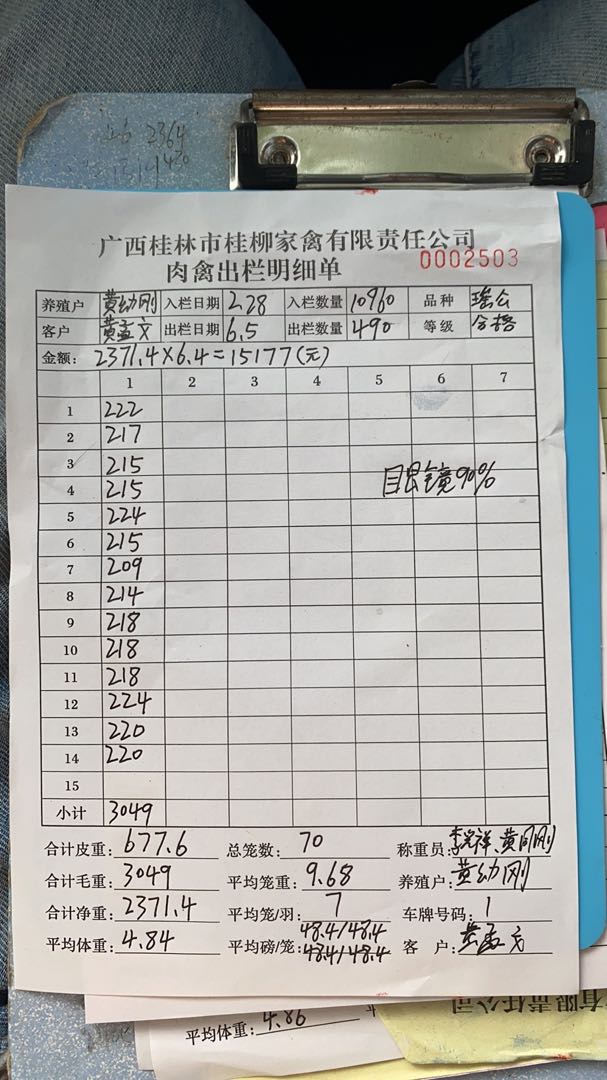 26 2364
420
广西桂林市桂柳家禽有限责任公司
肉禽出栏明细单
0002503
养殖户 黄幼刚 入栏日期 2.28 入栏数量 10960 品种 瑶公
客户 黄孟文 出栏日期 6.5 出栏数量 490 等级 合格
金额: 2371.4×6.4=15177(元)
1 2 3 4 5 6 7
1 222
2 217
3 215
4 215 目艮镜90%
5 224
6 215
7 209
8 214
9 218
10 218
11 218
12 224
13 220
14 220
15
小计 3049
合计皮重: 677.6 总笼数: 70 称重员: 黄刚刚
合计毛重: 3049 平均笼重: 9.68 养殖户: 黄幼刚
合计净重: 2371.4 平均笼/羽: 7 车牌号码: 1
平均体重: 4.84 平均磅/笼: 48.4/48.4 48.4/48.4 客 户: 黄孟文
平均体重: 4.86
有限责任公司